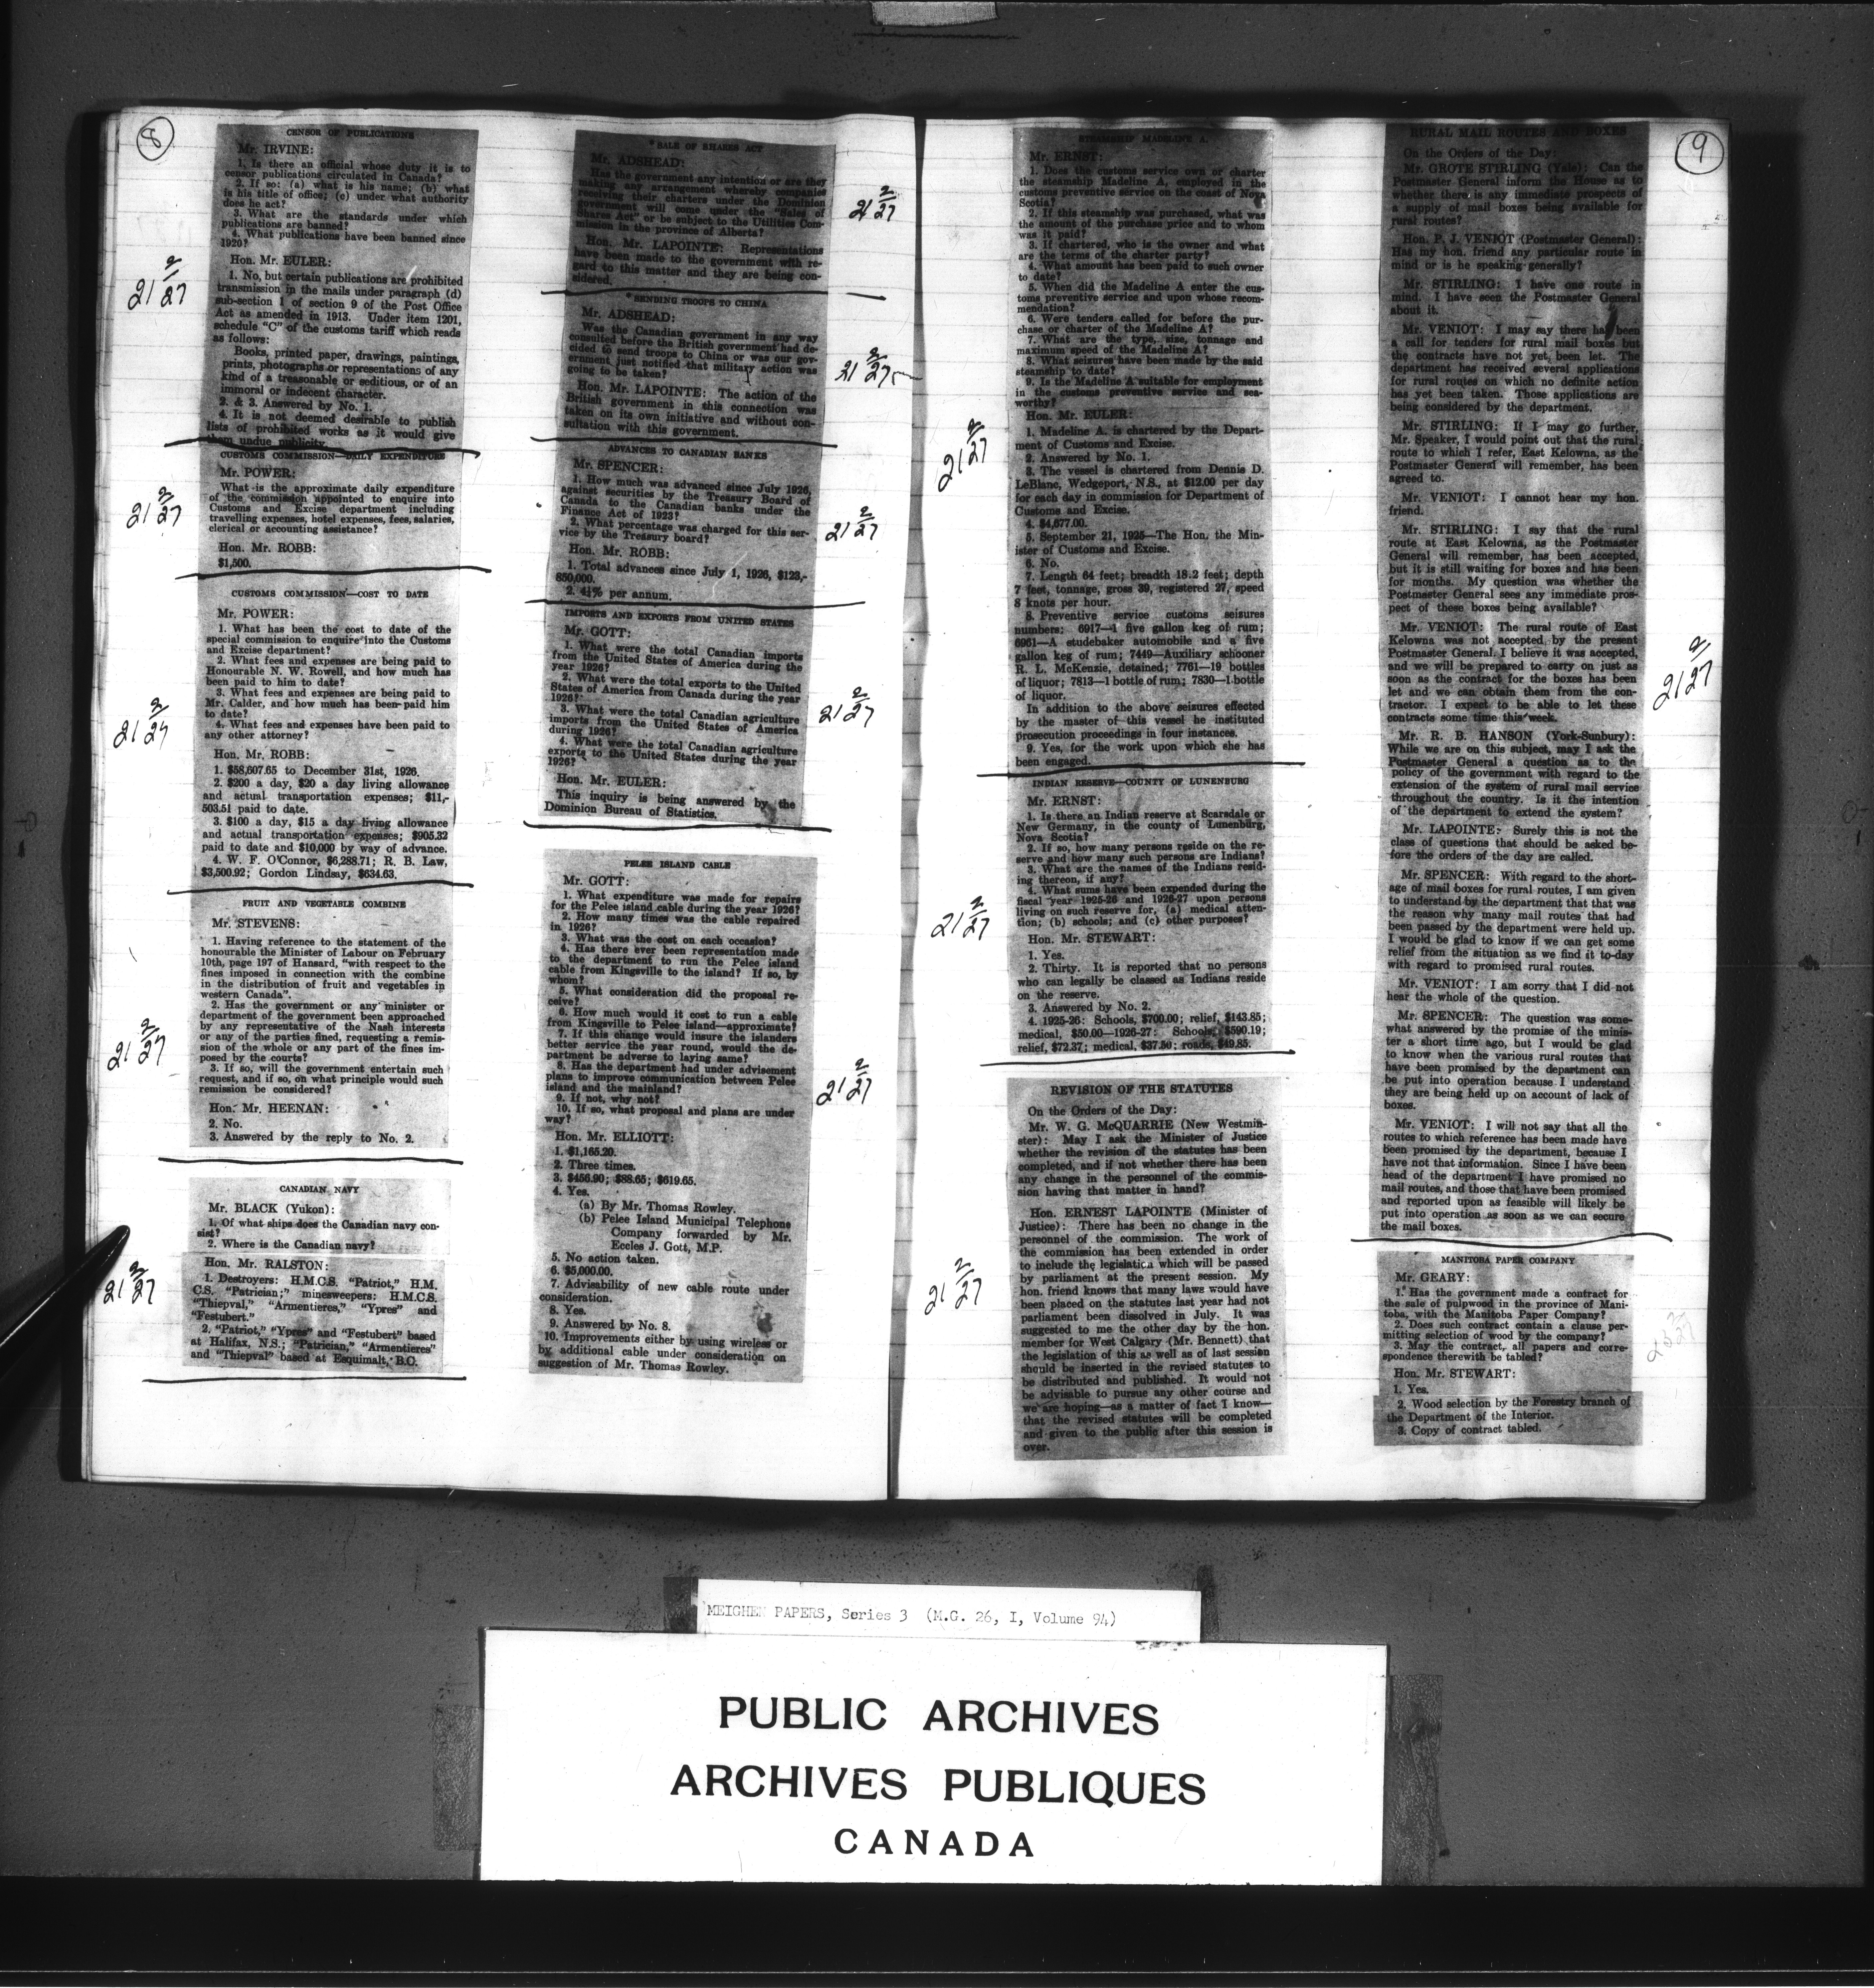 8
CENSOR OF PUBLICATIONS
Mr. IRVINE:
1. Is there an official whose duty it is to
censor publications circulated in Canada?
2. If so: (a) what is his name; (b) what
is his title of office; (c) under what authority
does he act?
3. What are the standards under which
publications are banned?
4. What publications have been banned since
1920?
Hon. Mr. EULER:
1. No, but certain publications are prohibited
transmission in the mails under paragraph (d)
sub-section 1 of section 9 of the Post Office
Act as amended in 1913. Under item 1201,
schedule "C" of the customs tariff which reads
as follows:
Books, printed paper, drawings, paintings,
prints, photographs or representations of any
kind of a treasonable or seditious, or of an
immoral or indecent character.
2. & 3. Answered by No. 1.
4. It is not deemed desirable to publish
lists of prohibited works as it would give
them undue publicity.
21 2/27
CUSTOMS COMMISSION—DAILY EXPENDITURE
Mr. POWER:
What is the approximate daily expenditure
of the commission appointed to enquire into
Customs and Excise department including
travelling expenses, hotel expenses, fees, salaries,
clerical or accounting assistance?
Hon. Mr. ROBB:
$1,500.
21 2/27
CUSTOMS COMMISSION—COST TO DATE
Mr. POWER:
1. What has been the cost to date of the
special commission to enquire into the Customs
and Excise department?
2. What fees and expenses are being paid to
Honourable N. W. Rowell, and how much has
been paid to him to date?
3. What fees and expenses are being paid to
Mr. Calder, and how much has been paid him
to date?
4. What fees and expenses have been paid to
any other attorney?
Hon. Mr. ROBB:
1. $58,607.65 to December 31st, 1926.
2. $200 a day, $20 a day living allowance
and actual transportation expenses; $11,-
503.51 paid to date.
3. $100 a day, $15 a day living allowance
and actual transportation expenses; $905.32
paid to date and $10,000 by way of advance.
4. W. F. O'Connor, $6,288.71; R. B. Law,
$3,500.92; Gordon Lindsay, $634.63.
21 2/27
FRUIT AND VEGETABLE COMBINE
Mr. STEVENS:
1. Having reference to the statement of the
honourable the Minister of Labour on February
10th, page 197 of Hansard, "with respect to the
fines imposed in connection with the combine
in the distribution of fruit and vegetables in
western Canada".
2. Has the government or any minister or
department of the government been approached
by any representative of the Nash interests
or any of the parties fined, requesting a remis-
sion of the whole or any part of the fines im-
posed by the courts?
3. If so, will the government entertain such
request, and if so, on what principle would such
remission be considered?
Hon. Mr. HEENAN:
2. No.
3. Answered by the reply to No. 2.
21 2/27
CANADIAN NAVY
Mr. BLACK (Yukon):
1. Of what ships does the Canadian navy con-
sist?
2. Where is the Canadian navy?
Hon. Mr. RALSTON:
1. Destroyers: H.M.C.S. "Patriot," H.M.
C.S. "Patrician;" minesweepers: H.M.C.S.
"Thiepval," "Armentieres," "Ypres" and
"Festubert."
2. "Patriot," "Ypres" and "Festubert" based
at Halifax, N.S.; "Patrician," "Armentieres"
and "Thiepval" based at Esquimalt, B.C.
21 2/27
* SALE OF SHARES ACT
Mr. ADSHEAD:
Has the government any intention or are they
making any arrangement whereby companies
receiving their charters under the Dominion
government will come under the "Sales of
Shares Act" or be subject to the Utilities Com-
mission in the province of Alberta?
Hon. Mr. LAPOINTE: Representations
have been made to the government with re-
gard to this matter and they are being con-
sidered.
21 2/27
* SENDING TROOPS TO CHINA
Mr. ADSHEAD:
Was the Canadian government in any way
consulted before the British government had de-
cided to send troops to China or was our gov-
ernment just notified that military action was
going to be taken?
Hon. Mr. LAPOINTE: The action of the
British government in this connection was
taken on its own initiative and without con-
sultation with this government.
21 2/27
ADVANCES TO CANADIAN BANKS
Mr. SPENCER:
1. How much was advanced since July 1926,
against securities by the Treasury Board of
Canada to the Canadian banks under the
Finance Act of 1923?
2. What percentage was charged for this ser-
vice by the Treasury board?
Hon. Mr. ROBB:
1. Total advances since July 1, 1926, $123,-
850,000.
2. 4½% per annum.
21 2/27
IMPORTS AND EXPORTS FROM UNITED STATES
Mr. GOTT:
1. What were the total Canadian imports
from the United States of America during the
year 1926?
2. What were the total exports to the United
States of America from Canada during the year
1926?
3. What were the total Canadian agriculture
imports from the United States of America
during 1926?
4. What were the total Canadian agriculture
exports to the United States during the year
1926?
Hon. Mr. EULER:
This inquiry is being answered by the
Dominion Bureau of Statistics.
21 2/27
PELEE ISLAND CABLE
Mr. GOTT:
1. What expenditure was made for repairs
for the Pelee island cable during the year 1926?
2. How many times was the cable repaired
in 1926?
3. What was the cost on each occasion?
4. Has there ever been representation made
to the department to run the Pelee island
cable from Kingsville to the island? If so, by
whom?
5. What consideration did the proposal re-
ceive?
6. How much would it cost to run a cable
from Kingsville to Pelee island—approximate?
7. If this change would insure the islanders
better service the year round, would the de-
partment be adverse to laying same?
8. Has the department had under advisement
plans to improve communication between Pelee
island and the mainland?
9. If not, why not?
10. If so, what proposal and plans are under
way?
Hon. Mr. ELLIOTT:
1. $1,165.20.
2. Three times.
3. $456.90; $88.65; $619.65.
4. Yes.
(a) By Mr. Thomas Rowley.
(b) Pelee Island Municipal Telephone
Company forwarded by Mr.
Eccles J. Gott, M.P.
5. No action taken.
6. $5,000.00.
7. Advisability of new cable route under
consideration.
8. Yes.
9. Answered by No. 8.
10. Improvements either by using wireless or
by additional cable under consideration on
suggestion of Mr. Thomas Rowley.
21 2/27
STEAMSHIP MADELINE A.
Mr. ERNST:
1. Does the customs service own or charter
the steamship Madeline A, employed in the
customs preventive service on the coast of Nova
Scotia?
2. If this steamship was purchased, what was
the amount of the purchase price and to whom
was it paid?
3. If chartered, who is the owner and what
are the terms of the charter party?
4. What amount has been paid to such owner
to date?
5. When did the Madeline A enter the cus-
toms preventive service and upon whose recom-
mendation?
6. Were tenders called for before the pur-
chase or charter of the Madeline A?
7. What are the type, size, tonnage and
maximum speed of the Madeline A?
8. What seizures have been made by the said
steamship to date?
9. Is the Madeline A suitable for employment
in the customs preventive service and sea-
worthy?
Hon. Mr. EULER:
1. Madeline A. is chartered by the Depart-
ment of Customs and Excise.
2. Answered by No. 1.
3. The vessel is chartered from Dennis D.
LeBlanc, Wedgeport, N.S., at $12.00 per day
for each day in commission for Department of
Customs and Excise.
4. $4,677.00.
5. September 21, 1925—The Hon. the Min-
ister of Customs and Excise.
6. No.
7. Length 64 feet; breadth 18.2 feet; depth
7 feet, tonnage, gross 39, registered 27, speed
8 knots per hour.
8. Preventive service customs seizures
numbers: 6917—1 five gallon keg of rum;
6951—A studebaker automobile and a five
gallon keg of rum; 7449—Auxiliary schooner
R. L. McKenzie, detained; 7761—19 bottles
of liquor; 7813—1 bottle of rum; 7830—1 bottle
of liquor.
In addition to the above seizures effected
by the master of this vessel he instituted
prosecution proceedings in four instances.
9. Yes, for the work upon which she has
been engaged.
21 2/27
INDIAN RESERVE—COUNTY OF LUNENBURG
Mr. ERNST:
1. Is there an Indian reserve at Scarsdale or
New Germany, in the county of Lunenburg,
Nova Scotia?
2. If so, how many persons reside on the re-
serve and how many such persons are Indians?
3. What are the names of the Indians resid-
ing thereon, if any?
4. What sums have been expended during the
fiscal year 1925-26 and 1926-27 upon persons
living on such reserve for, (a) medical atten-
tion; (b) schools; and (c) other purposes?
Hon. Mr. STEWART:
1. Yes.
2. Thirty. It is reported that no persons
who can legally be classed as Indians reside
on the reserve.
3. Answered by No. 2.
4. 1925-26: Schools, $700.00; relief, $143.85;
medical, $50.00—1926-27: Schools, $590.19;
relief, $72.37; medical, $37.50; roads, $49.85.
21 2/27
REVISION OF THE STATUTES
On the Orders of the Day:
Mr. W. G. McQUARRIE (New Westmin-
ster): May I ask the Minister of Justice
whether the revision of the statutes has been
completed, and if not whether there has been
any change in the personnel of the commis-
sion having that matter in hand?
Hon. ERNEST LAPOINTE (Minister of
Justice): There has been no change in the
personnel of the commission. The work of
the commission has been extended in order
to include the legislation which will be passed
by parliament at the present session. My
hon. friend knows that many laws would have
been placed on the statutes last year had not
parliament been dissolved in July. It was
suggested to me the other day by the hon.
member for West Calgary (Mr. Bennett) that
the legislation of this as well as of last session
should be inserted in the revised statutes to
be distributed and published. It would not
be advisable to pursue any other course and
we are hoping—as a matter of fact I know—
that the revised statutes will be completed
and given to the public after this session is
over.
21 2/27
9
RURAL MAIL ROUTES AND BOXES
On the Orders of the Day:
Mr. GROTE STIRLING (Yale): Can the
Postmaster General inform the House as to
whether there is any immediate prospects of
a supply of mail boxes being available for
rural routes?
Hon. P. J. VENIOT (Postmaster General):
Has my hon. friend any particular route in
mind or is he speaking generally?
Mr. STIRLING: I have one route in
mind. I have seen the Postmaster General
about it.
Mr. VENIOT: I may say there has been
a call for tenders for rural mail boxes but
the contracts have not yet been let. The
department has received several applications
for rural routes on which no definite action
has yet been taken. Those applications are
being considered by the department.
Mr. STIRLING: If I may go further,
Mr. Speaker, I would point out that the rural
route to which I refer, East Kelowna, as the
Postmaster General will remember, has been
agreed to.
Mr. VENIOT: I cannot hear my hon.
friend.
Mr. STIRLING: I say that the rural
route at East Kelowna, as the Postmaster
General will remember, has been accepted,
but it is still waiting for boxes and has been
for months. My question was whether the
Postmaster General sees any immediate pros-
pect of these boxes being available?
Mr. VENIOT: The rural route of East
Kelowna was not accepted by the present
Postmaster General. I believe it was accepted,
and we will be prepared to carry on just as
soon as the contract for the boxes has been
let and we can obtain them from the con-
tractor. I expect to be able to let these
contracts some time this week.
Mr. R. B. HANSON (York-Sunbury):
While we are on this subject, may I ask the
Postmaster General a question as to the
policy of the government with regard to the
extension of the system of rural mail service
throughout the country. Is it the intention
of the department to extend the system?
Mr. LAPOINTE: Surely this is not the
class of questions that should be asked be-
fore the orders of the day are called.
Mr. SPENCER: With regard to the short-
age of mail boxes for rural routes, I am given
to understand by the department that that was
the reason why many mail routes that had
been passed by the department were held up.
I would be glad to know if we can get some
relief from the situation as we find it to-day
with regard to promised rural routes.
Mr. VENIOT: I am sorry that I did not
hear the whole of the question.
Mr. SPENCER: The question was some-
what answered by the promise of the minis-
ter a short time ago, but I would be glad
to know when the various rural routes that
have been promised by the department can
be put into operation because I understand
they are being held up on account of lack of
boxes.
Mr. VENIOT: I will not say that all the
routes to which reference has been made have
been promised by the department, because I
have not that information. Since I have been
head of the department I have promised no
mail routes, and those that have been promised
and reported upon as feasible will likely be
put into operation as soon as we can secure
the mail boxes.
21 2/27
MANITOBA PAPER COMPANY
Mr. GEARY:
1. Has the government made a contract for
the sale of pulpwood in the province of Mani-
toba, with the Manitoba Paper Company?
2. Does such contract contain a clause per-
mitting selection of wood by the company?
3. May the contract, all papers and corre-
spondence therewith be tabled?
Hon. Mr. STEWART:
1. Yes.
2. Wood selection by the Forestry branch of
the Department of the Interior.
3. Copy of contract tabled.
MEIGHEN PAPERS, Series 3 (M.G. 26, I, Volume 94)
PUBLIC ARCHIVES
ARCHIVES PUBLIQUES
CANADA